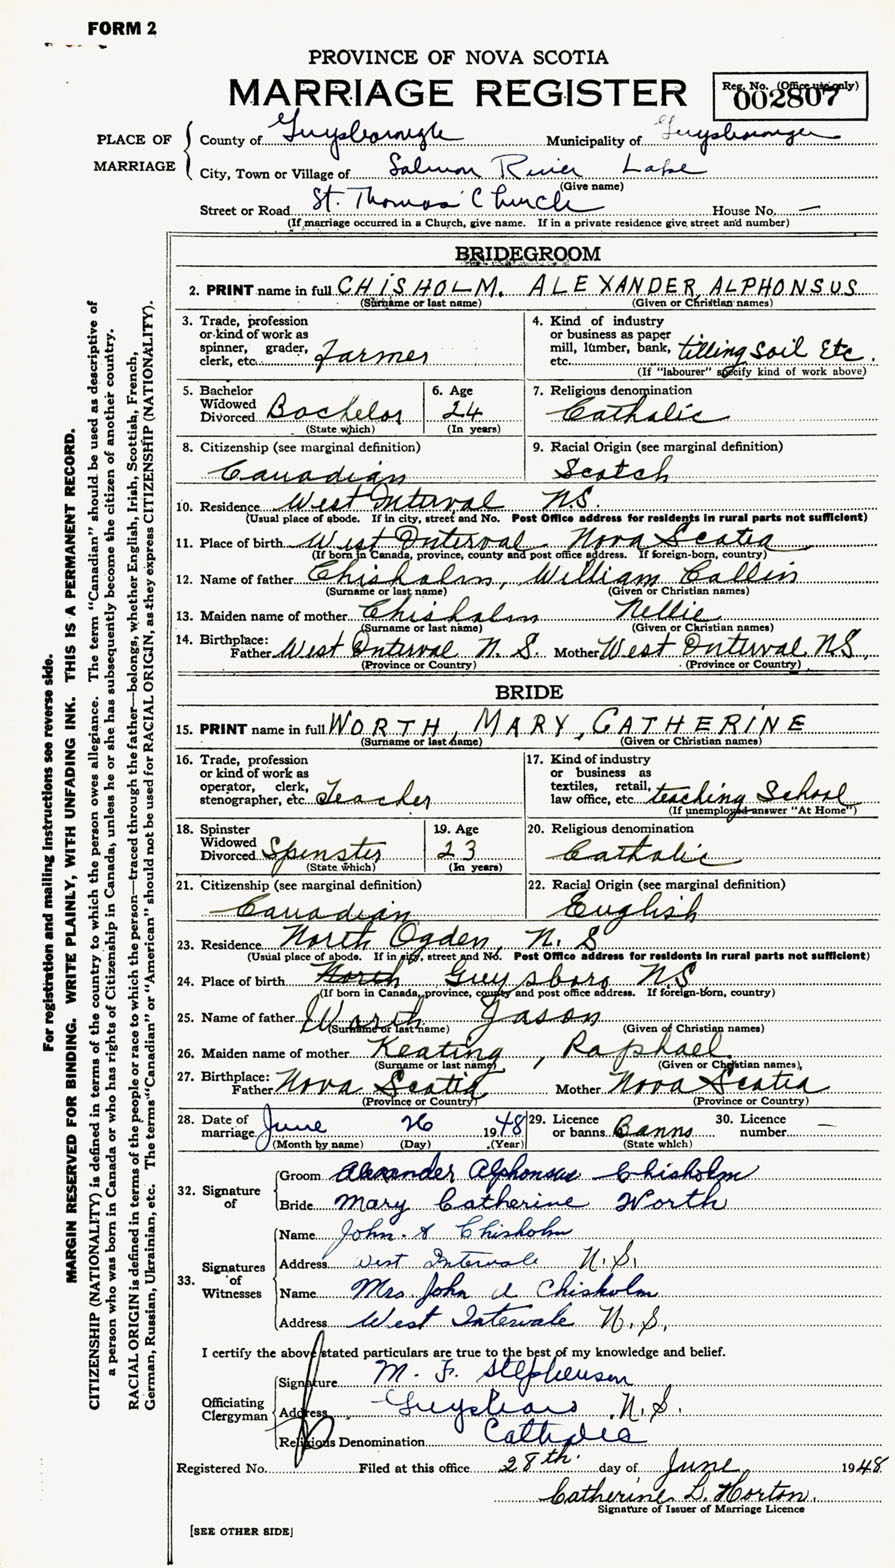 FORM 2
PROVINCE OF NOVA SCOTIA
MARRIAGE REGISTER
Reg. No. (Office use only)
002807
PLACE OF MARRIAGE
County of Guysborough Municipality of Guysborough
City, Town or Village of Salmon River Lake
(Give name)
Street or Road St. Thomas' Church House No. —
(If marriage occurred in a Church, give name. If in a private residence give street and number)
BRIDEGROOM
2. PRINT name in full CHISHOLM, ALEXANDER, ALPHONSUS
(Surname or last name) (Given or Christian names)
3. Trade, profession or kind of work as spinner, grader, clerk, etc. Farmer
4. Kind of industry or business as paper mill, lumber, bank, etc. tilling soil Etc.
(If "labourer" specify kind of work above)
5. Bachelor Widowed Divorced Bachelor
(State which)
6. Age 24
(In years)
7. Religious denomination
Catholic
8. Citizenship (see marginal definition)
Canadian
9. Racial Origin (see marginal definition)
Scotch
10. Residence West Interval N.S.
(Usual place of abode. If in city, street and No. Post Office address for residents in rural parts not sufficient)
11. Place of birth West Interval Nova Scotia
(If born in Canada, province, county and post office address. If foreign-born, country)
12. Name of father Chisholm, William Collin
(Surname or last name) (Given or Christian names)
13. Maiden name of mother Chisholm Nellie
(Surname or last name) (Given or Christian names)
14. Birthplace:
Father West Interval N. S. Mother West Interval N.S,
(Province or Country) (Province or Country)
BRIDE
15. PRINT name in full WORTH, MARY, CATHERINE
(Surname or last name) (Given or Christian names)
16. Trade, profession or kind of work as operator, clerk, stenographer, etc. Teacher
17. Kind of industry or business as textiles, retail, law office, etc. teaching School
(If unemployed answer "At Home")
18. Spinster Widowed Divorced Spinster
(State which)
19. Age 23
(In years)
20. Religious denomination
Catholic
21. Citizenship (see marginal definition)
Canadian
22. Racial Origin (see marginal definition)
English
23. Residence North Ogden, N. S
(Usual place of abode. If in city, street and No. Post Office address for residents in rural parts not sufficient)
24. Place of birth North Guysboro N.S
(If born in Canada, province, county and post office address. If foreign-born, country)
25. Name of father Worth Jason
(Surname or last name) (Given or Christian names)
26. Maiden name of mother Keating, Raphael
(Surname or last name) (Given or Christian names)
27. Birthplace:
Father Nova Scotia Mother Nova Scotia
(Province or Country) (Province or Country)
28. Date of marriage June 26 1948
(Month by name) (Day) (Year)
29. Licence or banns Banns
(State which)
30. Licence number —
32. Signature of
Groom Alexander Alphonsus Chisholm
Bride Mary Catherine Worth
33. Signatures of Witnesses
Name John A Chisholm
Address West Intervale N.S.
Name Mrs. John A Chisholm
Address West Intervale N.S.
I certify the above stated particulars are true to the best of my knowledge and belief.
Officiating Clergyman
Signature M. F. Stephenson
Address Guysboro N.S.
Religious Denomination Catholic
Registered No. Filed at this office 28th. day of June 1948
Catherine L. Horton.
Signature of Issuer of Marriage Licence
[SEE OTHER SIDE]
For registration and mailing instructions see reverse side.
MARGIN RESERVED FOR BINDING. WRITE PLAINLY, WITH UNFADING INK. THIS IS A PERMANENT RECORD.
CITIZENSHIP (NATIONALITY) is defined in terms of the country to which the person owes allegiance. The term "Canadian" should be used as descriptive of
a person who was born in Canada or who has rights of Citizenship in Canada, unless he or she has subsequently become the citizen of another country.
RACIAL ORIGIN is defined in terms of the people or race to which the person—traced through the father—belongs, whether English, Irish, Scottish, French,
German, Russian, Ukrainian, etc. The terms "Canadian" or "American" should not be used for RACIAL ORIGIN, as they express CITIZENSHIP (NATIONALITY).